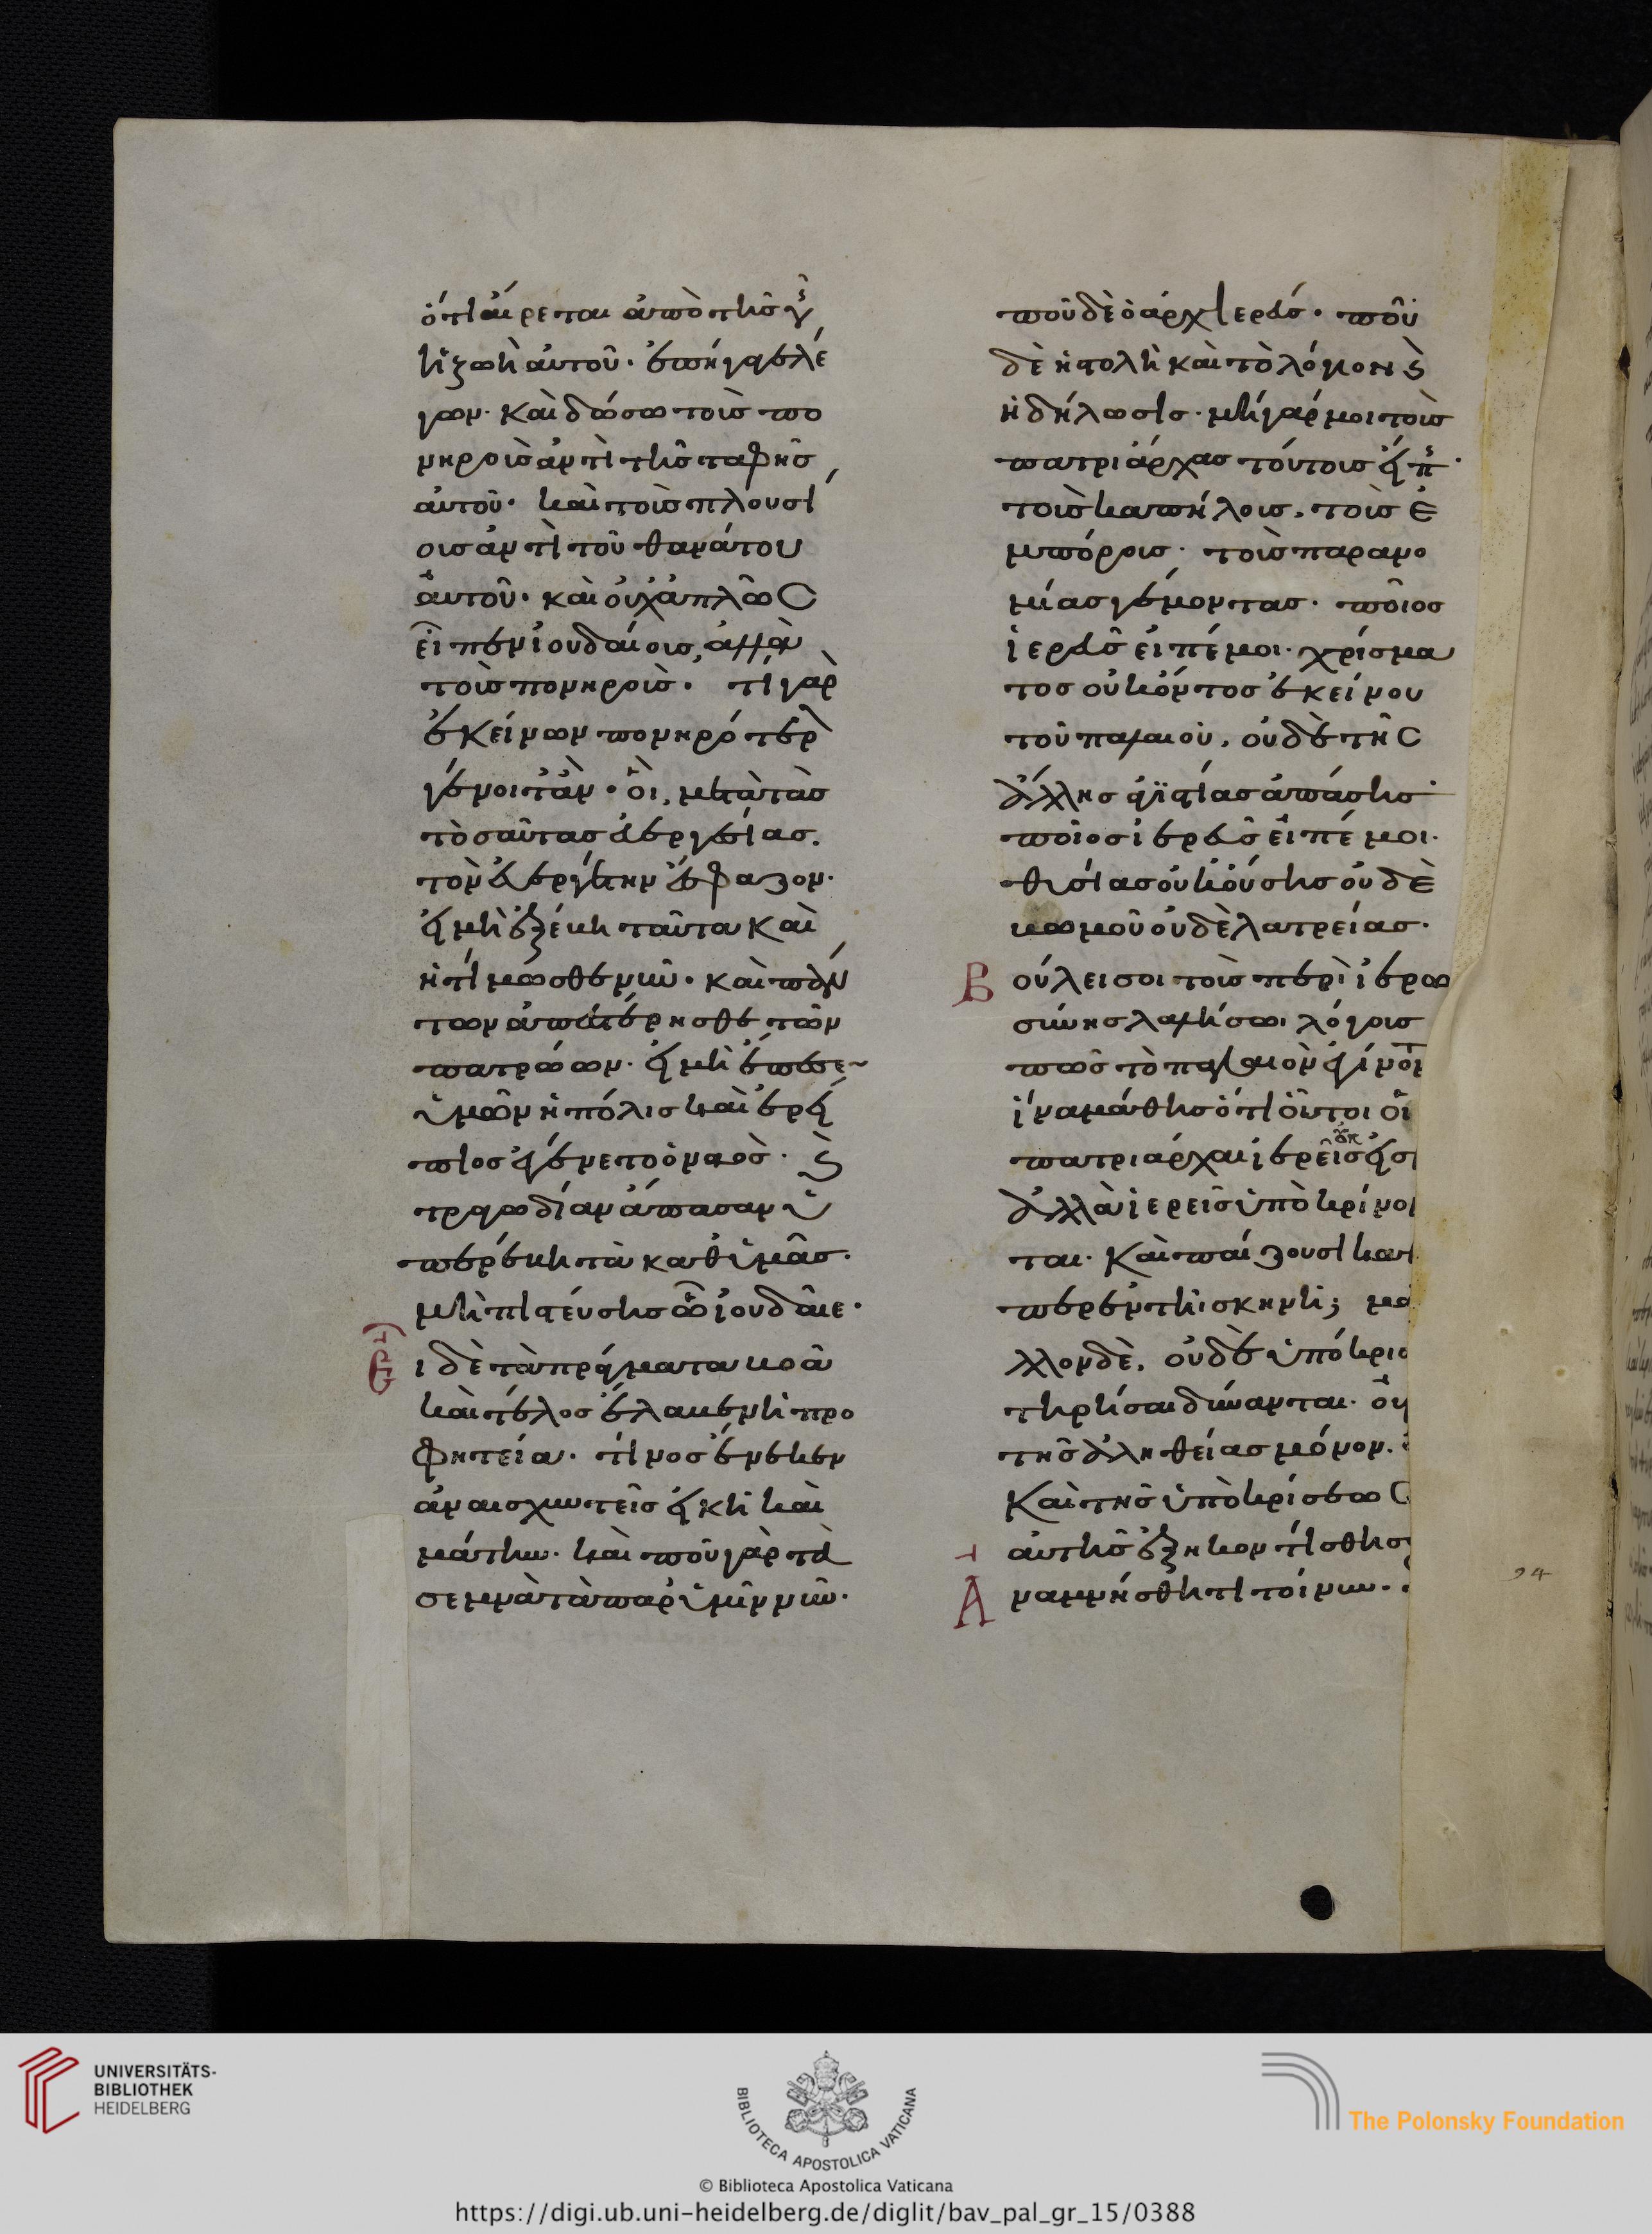 ὅτι αἴρεται ἀπὸ τῆς γῆς
ἡ ζωὴ αὐτοῦ. ἐπήγαγε λέ
γων. καὶ δώσω τοὺς πο
νηροὺς ἀντὶ τῆς ταφῆς
αὐτοῦ. καὶ τοὺς πλουσί
ους ἀντὶ τοῦ θανάτου
αὐτοῦ. καὶ οὐχ ἁπλῶς
εἶπεν ἰουδαίους, ἀλλὰ
τοὺς πονηρούς. τί γὰρ
ἐκείνων πονηρότερον
γένοιτ ἄν. οἳ, μετὰ τὰς
τοσαύτας εὐεργεσίας.
τὸν εὐεργέτην ἔσφαζον.
εἰ μὴ ἐξέβη ταῦτα καὶ
ἠτίμωσθε νῦν. καὶ πάν
των ἀπεστέρησθε τῶν
πατρώων. εἰ μὴ ἔπεσεν
ὑμῶν ἡ πόλις καὶ ἐρεί
πιος γέγονε ὁ ναὸς. καὶ
τραγωδίαν ἅπασαν ὑ
περέβη τὰ καθ ὑμᾶς.
μὴ πιστεύσης ὦ ἰουδαῖε.
Εἰ δὲ τὰ πράγματα βοᾶ
καὶ τέλος ἔλαβεν ἡ προ
φητεία. τίνος ἕνεκεν
ἀναισχυντεῖς εἰκῆ καὶ
μάτην. καὶ ποῦ γὰρ τὰ
σεμνὰ τὰ παρ ὑμῖν νῦν.
ποῦ δὲ ὁ ἀρχιερεύς. ποῦ
δὲ ἡ στολὴ καὶ τὸ λόγιον καὶ
ἡ δήλωσις. μὴ γάρ μοι τοὺς
πατριάρχας τούτους εἴπης.
τοὺς καπήλους, τοὺς ἐ
μπόρους. τοὺς παρανο
μίας γέμοντας. ποῖος
ἱερεὺς εἰπέ μοι. χρίσμα
τος οὐκ ὄντος ἐκείνου
τοῦ παλαιοῦ, οὐδὲ τῆς
ἄλλης ἁγιστίας ἁπάσης
ποῖος ἱερεὺς εἰπέ μοι.
θυσίας οὐκ οὔσης οὐδὲ
βωμοῦ οὐδὲ λατρείας.
Βούλει σοι τοὺς περὶ ἱερω
σύνης λαλήσω λόγους
πῶς τὸ παλαιὸν ἐγίνον
ἵνα μάθης ὅτι οὗτοι οἱ
πατριάρχαι ἱερεῖς οὐκ εἰσ
ἀλλὰ ἱερεῖς ὑποκρίνον
ται. καὶ παίζουσι κα
περ ἐν τῆ σκηνῆ; μᾶ
λλον δὲ, οὐδὲ ὑπόκρισ
τηρῆσαι δύνανται. οὐ
τῆς ἀληθείας μόνον.
καὶ τῆς ὑποκρίσεως
αὐτῆς ἐξηκοντίσθησ
Ἀναμνήσθητι τοίνυν.
94
UNIVERSITÄTS-
BIBLIOTHEK
HEIDELBERG
BIBLIOTECA APOSTOLICA VATICANA
The Polonsky Foundation
© Biblioteca Apostolica Vaticana
https://digi.ub.uni-heidelberg.de/diglit/bav_pal_gr_15/0388